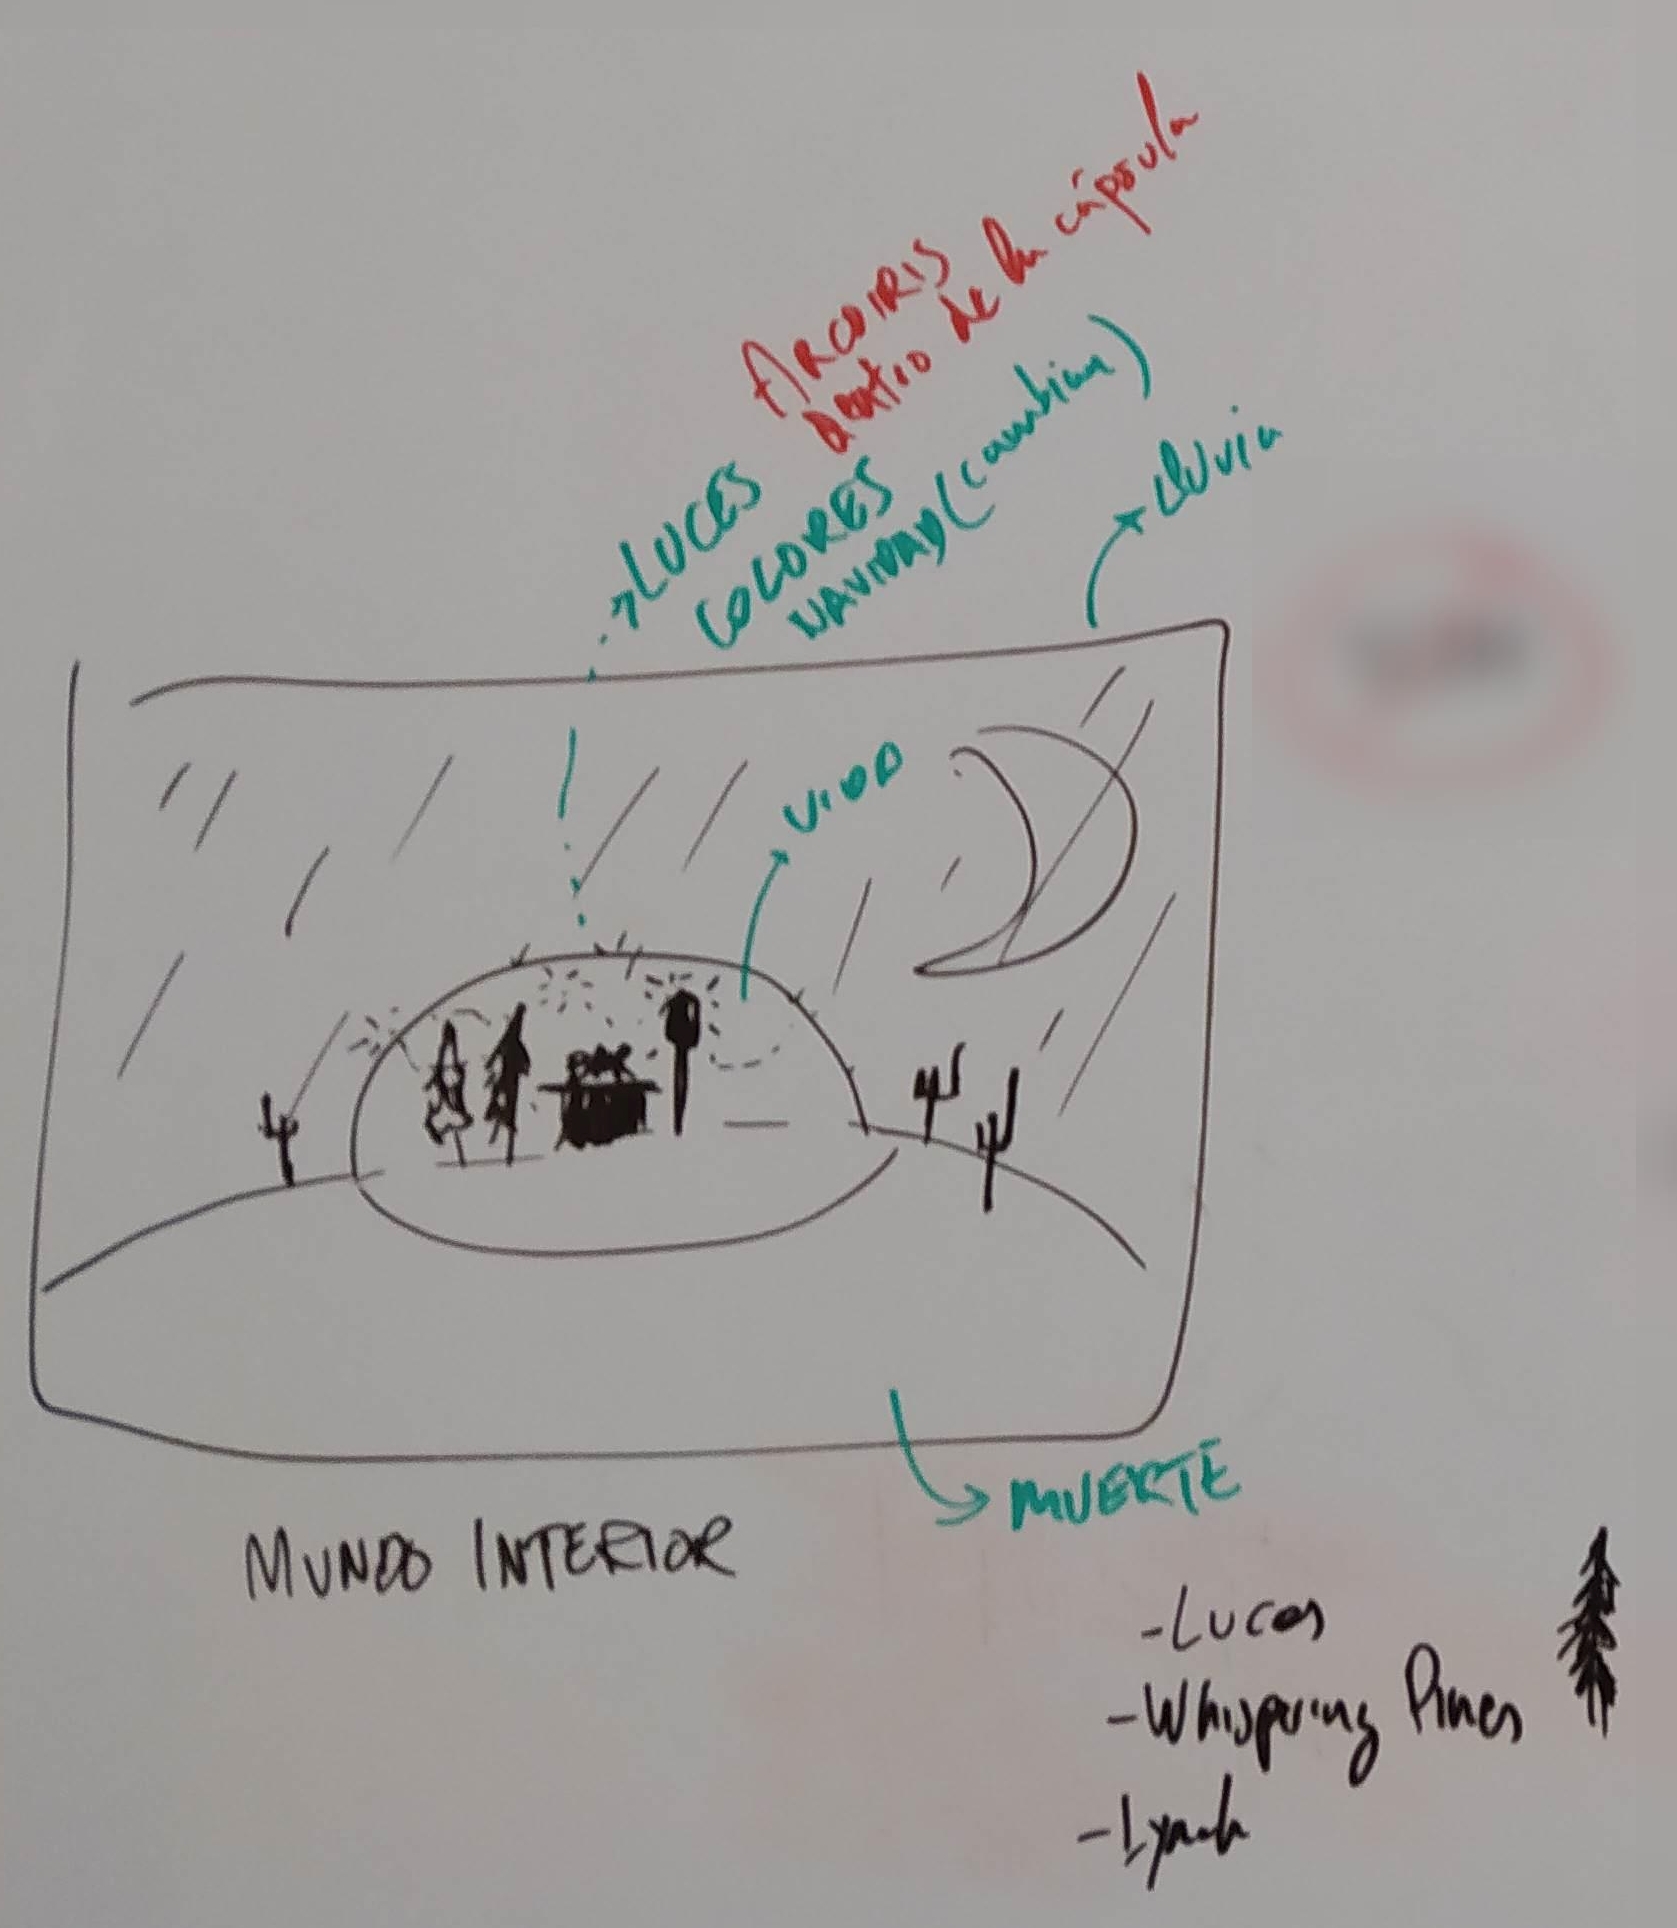 ARCOIRIS
dentro de la cápsula
LUCES
COLORES
NAVIDAD (cambian)
lluvia
VIDA
BAR
MUERTE
MUNDO INTERIOR
- Luces
- Whispering Pines
- Lynch